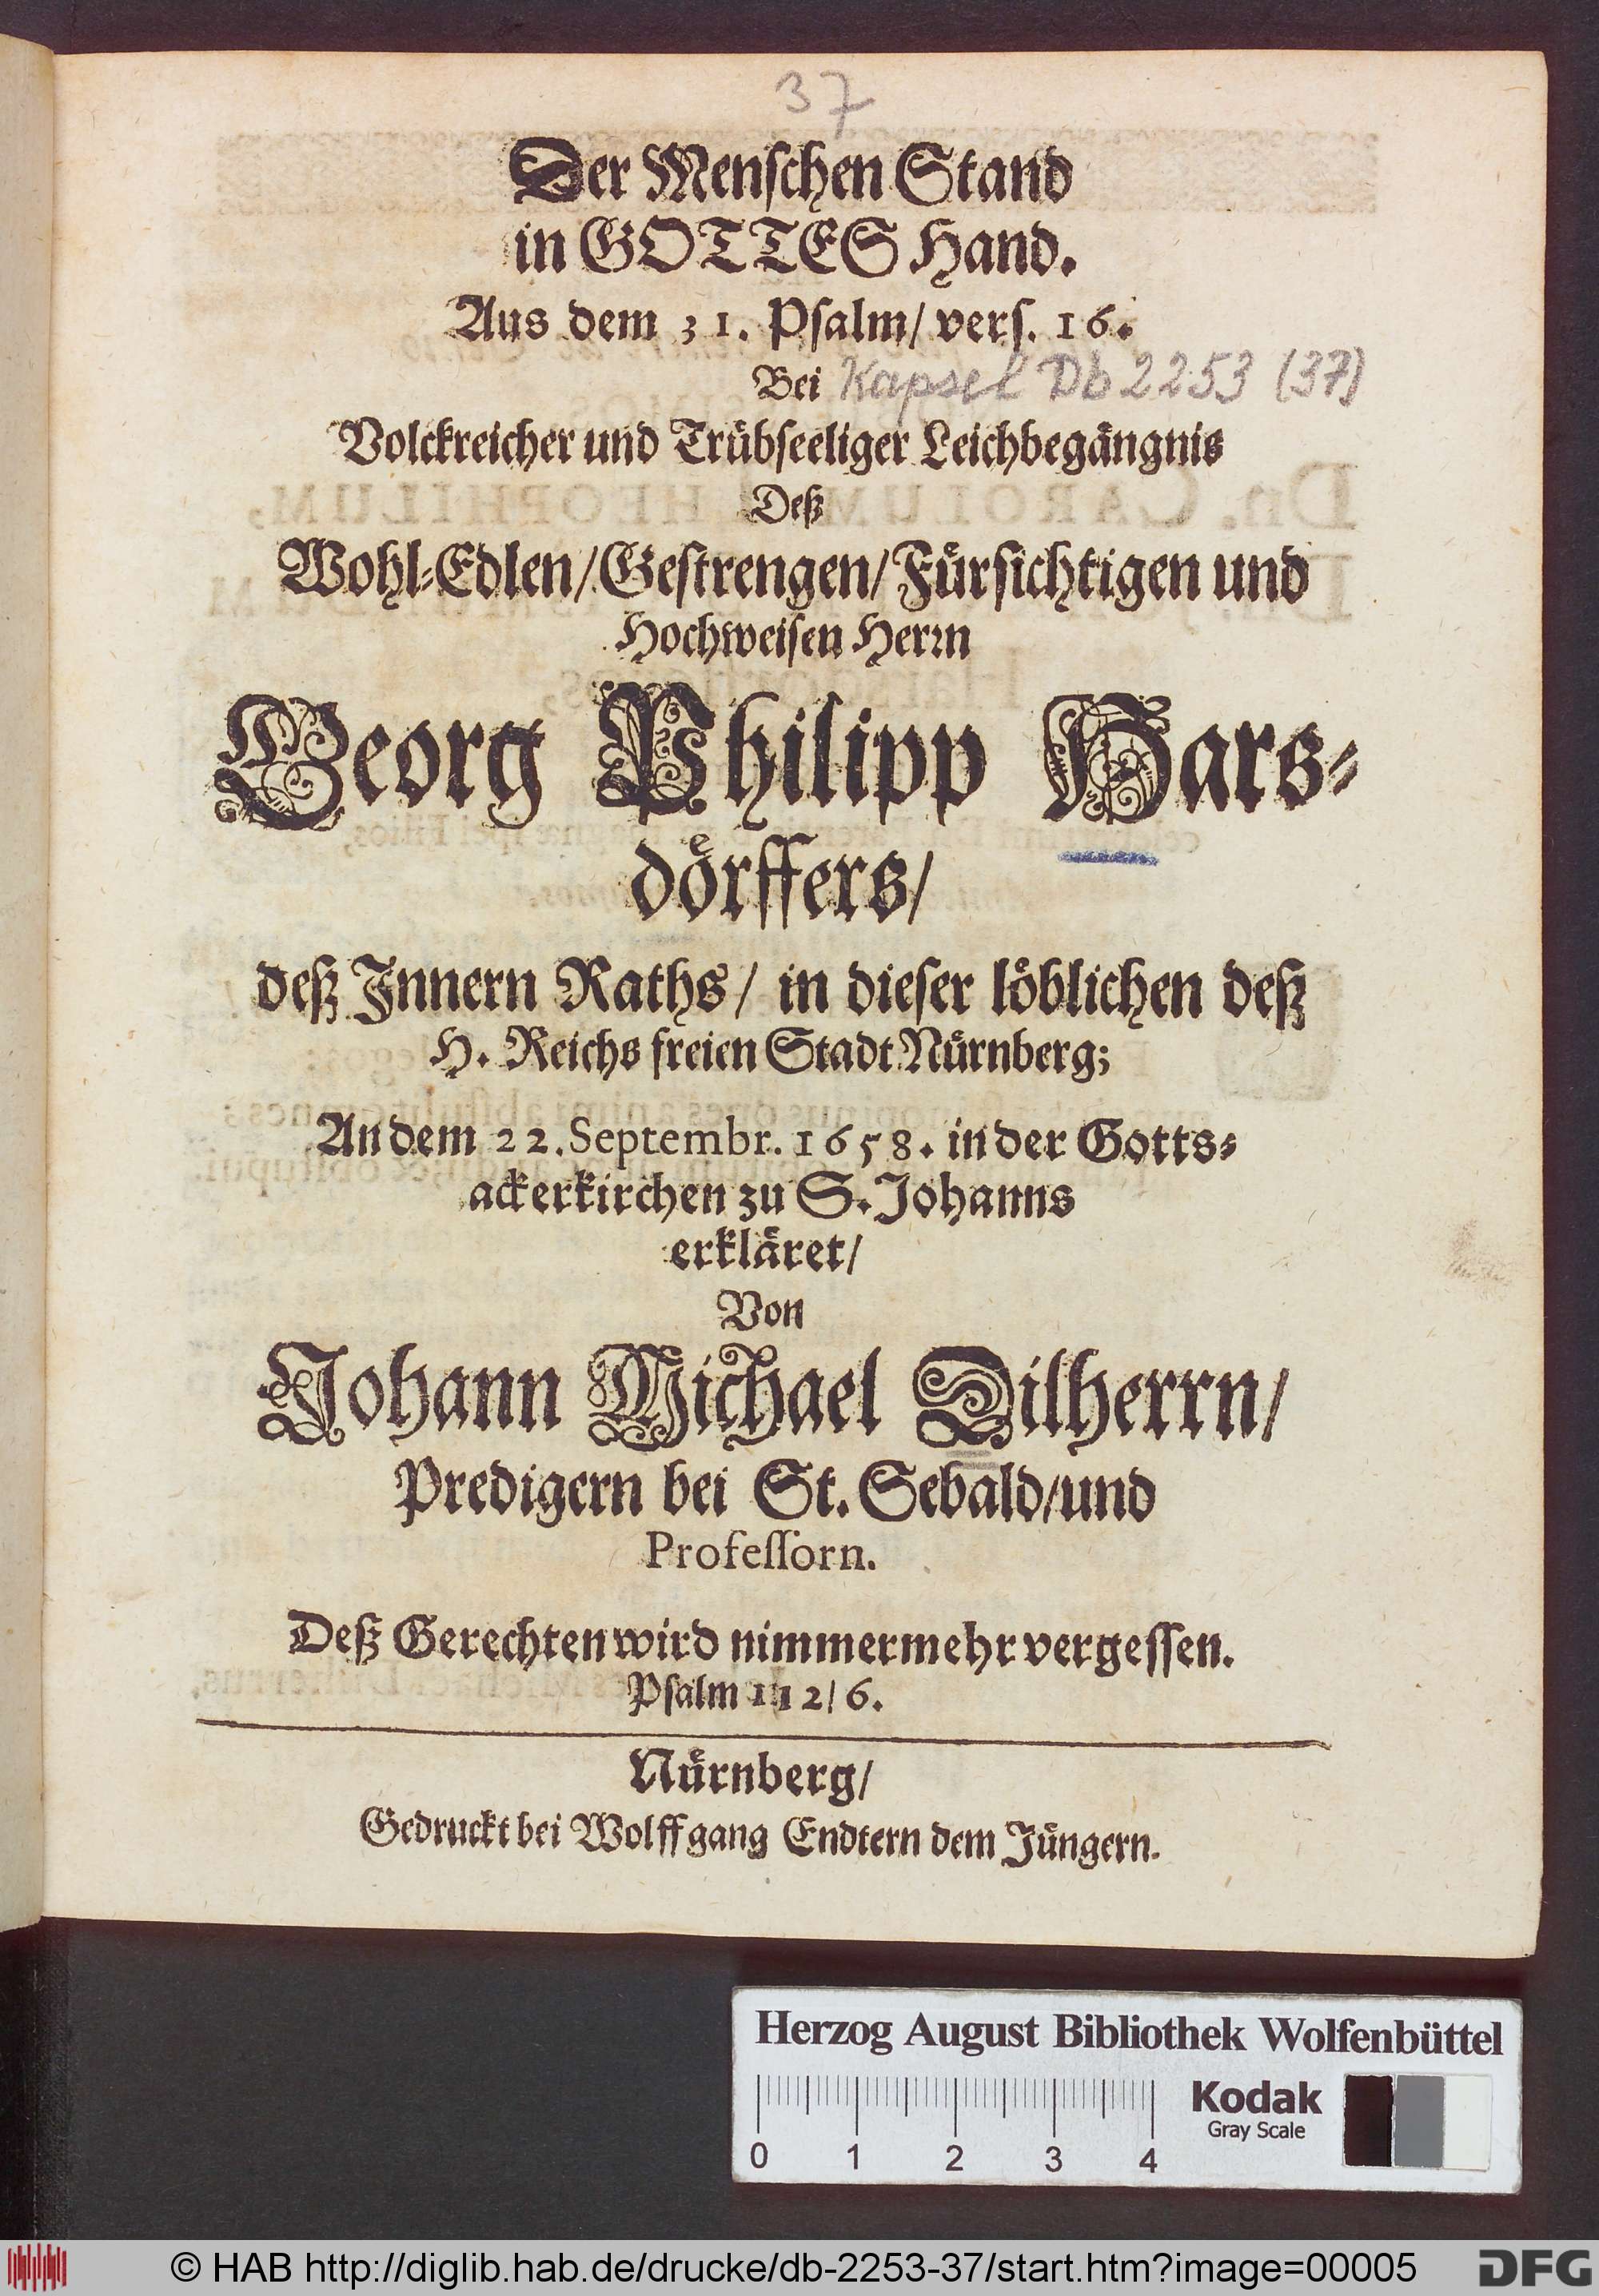 37
Der Menſchen Stand
in GOTTES Hand.
Aus dem 31. Pſalm/ verſ. 16.
Bei Kapsel Db 2253 (37)
Volckreicher und Truͤbſeeliger Leichbegaͤngnis
Deß
Wohl-Edlen/ Geſtrengen/ Fuͤrſichtigen und
Hochweiſen Herꝛn
Georg Philipp Hars-
doͤrffers/
deß Innern Raths/ in dieſer loͤblichen deß
H. Reichs freien Stadt Nuͤrnberg;
An dem 22. Septembr. 1658. in der Gotts-
ackerkirchen zu S. Johanns
erklaͤret/
Von
Johann Michael Dilherrn/
Predigern bei St. Sebald/ und
Profeſſorn.
Deß Gerechten wird nimmermehr vergeſſen.
Pſalm 112/ 6.
Nuͤrnberg/
Gedruckt bei Wolffgang Endtern dem Juͤngern.
Herzog August Bibliothek Wolfenbüttel
Kodak
Gray Scale
0 1 2 3 4
© HAB http://diglib.hab.de/drucke/db-2253-37/start.htm?image=00005
DFG